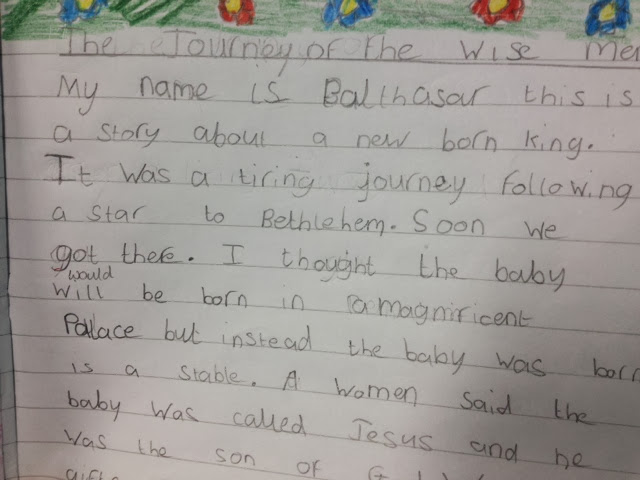 The Journey of the Wise Men
My name is Balthasar this is
a story about a new born king.
It was a tiring journey following
a star to Bethlehem. Soon we
got there. I thought the baby
would
will be born in a magnificent
Palace but instead the baby was born
is a stable. A women said the
baby was called Jesus and he
was the son of